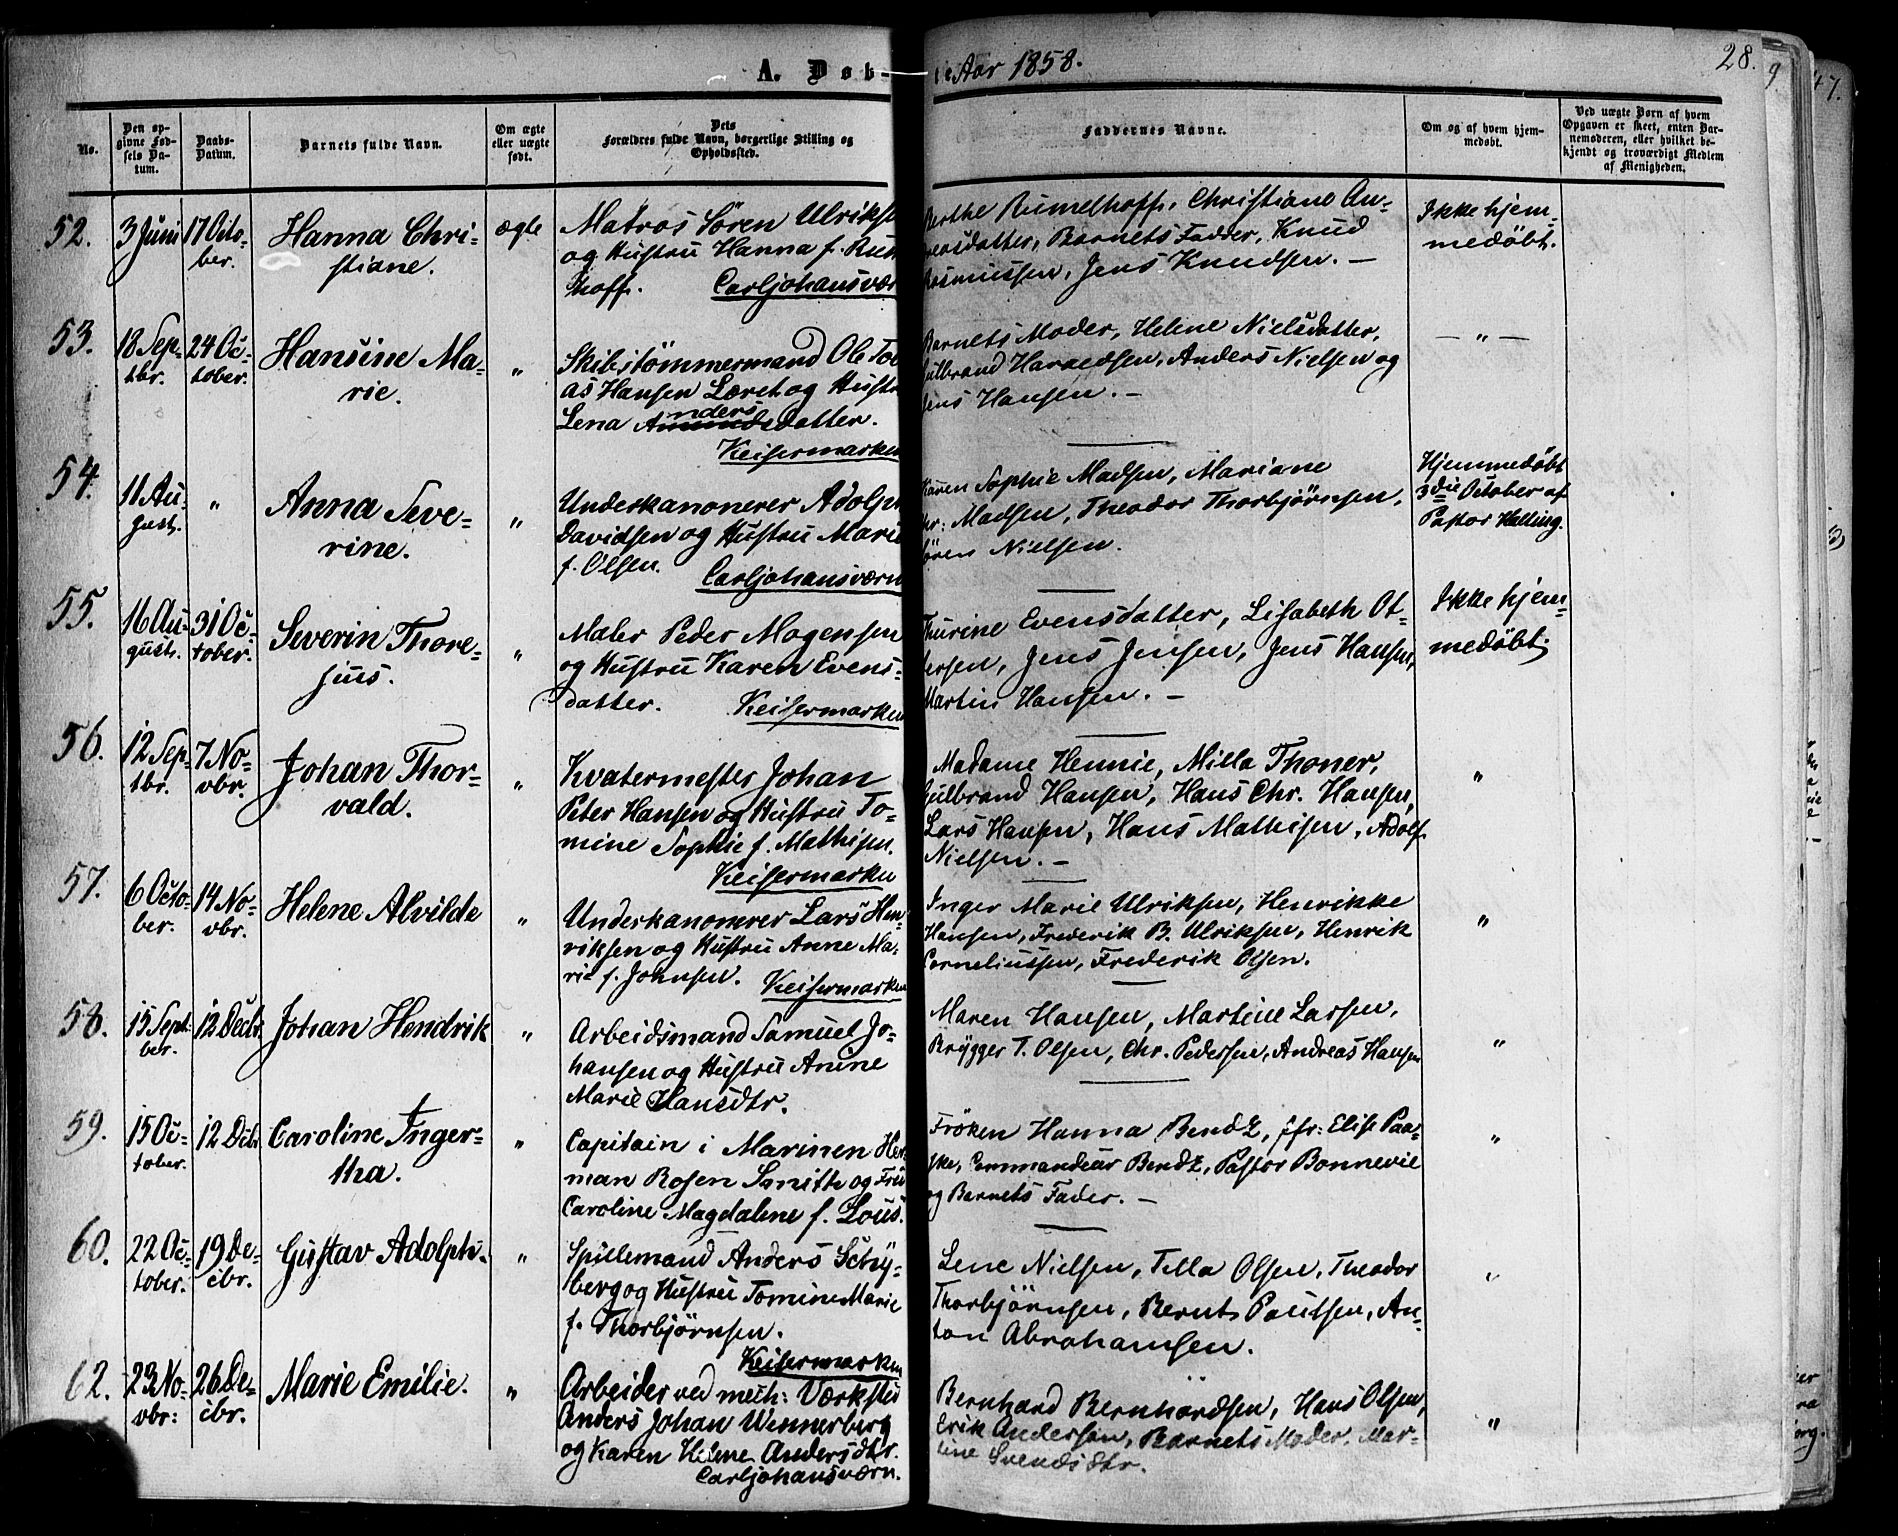 A. Døb-
te Aar 1858.
28.
No.
Den op-
givne Fød-
sels Da-
tum.
Daabs-
Datum.
Barnets fulde Navn.
Om ægte
eller uægte
født.
Dets
Forældres fulde Navn, borgerlige Stilling og
Opholdssted.
Faddernes Navne.
Om og af hvem hjem-
medøbt.
Ved uægte Børn af hvem
Opgaven er skeet, enten Bar-
nemoderen, eller hvilket be-
kjendt og troværdigt Medlem
af Menigheden.
52.
3 Juni
17 Octo-
ber.
Hanna Chri-
stiane.
ægte
Matros Sören Ulriks
og Hustru Hanna f. Rum
hoff. Carljohansværn
Berthe Rumelhoff, Christiane An-
dreasdatter, Barnets Fadder, Knud
Rasmussen, Jens Knudsen. —
Ikke hjem-
medöbt.
53.
18 Sep-
tbr.
24 Oc-
tober.
Hansine Ma-
rie.
"
Skibstömmermand Ole To
as Hansen Læret og Hustr
Lena Anders datter.
Keisermarken
Barnets Moder, Helene Nielsdatter,
Gulbrand Haraldsen, Anders Nielsen og
Jens Hansen. —
— " —
54.
11 Au-
gust.
"
Anna Seve-
rine.
"
Underkanonerer Adolph
Davidsen og Hustru Marie
f. Olsen. Carljohansværn
Karen Sophie Madsen, Mariane
Chr: Madsen, Theodor Thorbjörnsen,
Sören Nielsen.
Hjemmedöbt
3die October af
Pastor Halling.
55.
16 Au-
gust.
31 Oc-
tober.
Severin Thore-
sius.
"
Maler Peder Mogensen
og Hustru Karen Evens-
datter. Keisermarken
Thurine Evensdatter, Lisabeth Ot-
tersen, Jens Jensen, Jens Hansen,
Martin Hansen. —
Ikke hjem-
medöbt.
56.
12 Sep-
tbr.
7 No-
vbr.
Johan Thor-
vald.
"
Kvatermester Johan
Peter Hansen og Hustru To-
mine Sophie f. Mathisen.
Keisermarken
Madame Hennie, Milla Thoner,
Gulbrand Hansen, Hans Chr. Hansen,
Lars Hansen, Hans Mathisen, Adolf
Nielsen. —
"
57.
6 Octo-
ber.
14 No-
vbr.
Helene Alvilde
"
Underkanonerer Lars Hen-
riksen og Hustru Anne Ma-
rie f. Johnsen. Keisermarken
Inger Marie Ulriksen, Henrikke
Hansen, Frederik B. Ulriksen, Henrik
Corneliussen, Frederik Olsen.
"
58.
15 Sept.
ber.
12 Decbr.
Johan Hendrik
"
Arbeidsmand Samuel Jo-
hansen og Hustru Anine
Marie Hansdtr.
Maren Hansen, Martine Larsen,
Brygger T. Olsen, Chr. Pedersen, Andreas Hansen
"
59.
15 Oc-
tober.
12 Dcbr
Caroline Inger-
tha.
"
Capitain i Marinen Her
man Rosen Smith og Frue
Caroline Magdalene f. Lous.
Fröken Hanna Bendz, Jfr: Elise Paa-
ske, Commandeur Bendz, Pastor Bonnevie
og Barnets Fader. —
"
60.
22 Oc-
tober.
19 De-
cbr.
Gustav Adolph.
"
Spillemand Anders Schy-
berg og Hustru Tomine Marie
f. Thorbjörnsen.
Keisermarken
Lene Nielsen, Tilla Olsen, Theodor
Thorbjörnsen, Bernt Poulsen, An-
ton Abrahamsen.
"
62.
23 No-
vbr:
26 De-
cbr.
Marie Emilie.
"
Arbeider ved mech: Værksted
Anders Johan Wennerberg
og Karen Helene Andersdtr.
Carljohansværn.
Bernhard Bernhardsen, Hans Olsen,
Erik Andersen, Barnets Moder, Mar-
tine Svendsdtr.
"